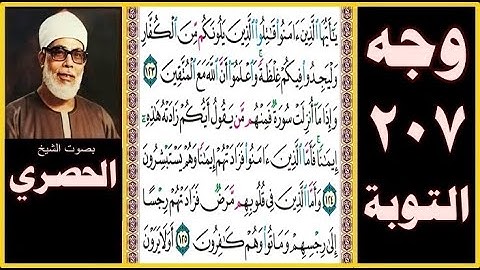 وجه
٢٠٧
التوبة
يَٰٓأَيُّهَا ٱلَّذِينَ ءَامَنُوا۟ قَٰتِلُوا۟ ٱلَّذِينَ يَلُونَكُم مِّنَ ٱلْكُفَّارِ
وَلْيَجِدُوا۟ فِيكُمْ غِلْظَةً ۚ وَٱعْلَمُوٓا۟ أَنَّ ٱللَّهَ مَعَ ٱلْمُتَّقِينَ ١٢٣
وَإِذَا مَآ أُنزِلَتْ سُورَةٌ فَمِنْهُم مَّن يَقُولُ أَيُّكُمْ زَادَتْهُ هَٰذِهِۦٓ
إِيمَٰنًا ۚ فَأَمَّا ٱلَّذِينَ ءَامَنُوا۟ فَزَادَتْهُمْ إِيمَٰنًا وَهُمْ يَسْتَبْشِرُونَ
١٢٤ وَأَمَّا ٱلَّذِينَ فِى قُلُوبِهِم مَّرَضٌ فَزَادَتْهُمْ رِجْسًا
إِلَىٰ رِجْسِهِمْ وَمَاتُوا۟ وَهُمْ كَٰفِرُونَ ١٢٥ أَوَلَا يَرَوْنَ
بصوت الشيخ
الحصري